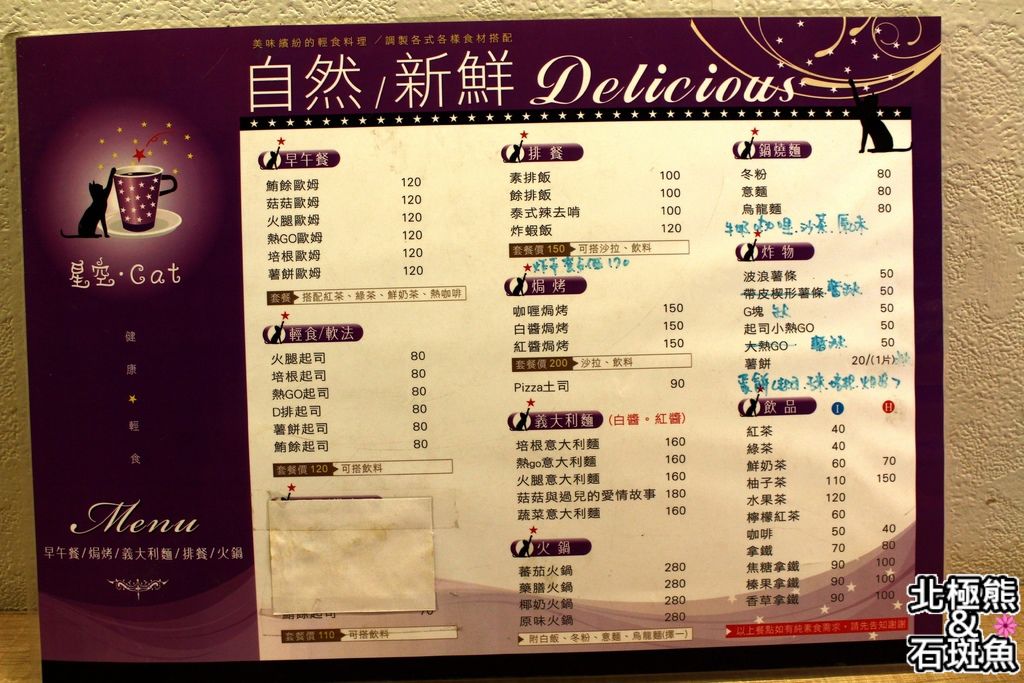 美味繽紛的輕食料理 ／調製各式各樣食材搭配
自然/新鮮 Delicious
星空·Cat
健康★輕食
Menu
早午餐/焗烤/義大利麵/排餐/火鍋
早午餐
鮪餘歐姆 120
菇菇歐姆 120
火腿歐姆 120
熱GO歐姆 120
培根歐姆 120
薯餅歐姆 120
套餐 搭配紅茶、綠茶、鮮奶茶、熱咖啡
輕食/軟法
火腿起司 80
培根起司 80
熱GO起司 80
D排起司 80
薯餅起司 80
鮪餘起司 80
套餐價 120 可搭飲料
鮪餘起司 70
套餐價 110 可搭飲料
排餐
素排飯 100
餘排飯 100
泰式辣去啃 100
炸蝦飯 120
套餐價 150 可搭沙拉、飲料
焗烤
咖喱焗烤 150
白醬焗烤 150
紅醬焗烤 150
套餐價 200 沙拉、飲料
Pizza土司 90
義大利麵 (白醬。紅醬)
培根意大利麵 160
熱go意大利麵 160
火腿意大利麵 160
菇菇與過兒的愛情故事 180
蔬菜意大利麵 160
火鍋
蕃茄火鍋 280
藥膳火鍋 280
椰奶火鍋 280
原味火鍋 280
附白飯、冬粉、意麵、烏龍麵(擇一)
鍋燒麵
冬粉 80
意麵 80
烏龍麵 80
牛奶.咖哩.沙茶.原味
炸物
波浪薯條 50
帶皮楔形薯條 暫缺 50
G塊 缺 50
起司小熱GO 50
大熱GO 暫缺 50
薯餅 20/(1片)
飲品 I H
紅茶 40
綠茶 40
鮮奶茶 60 70
柚子茶 110 150
水果茶 120
檸檬紅茶 60
咖啡 50 40
拿鐵 70 80
焦糖拿鐵 90 100
榛果拿鐵 90 100
香草拿鐵 90 100
以上餐點如有純素食需求，請先告知謝謝
北極熊
&
石斑魚